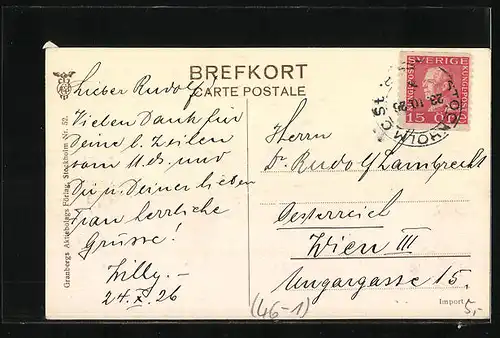 BREFKORT
CARTE POSTALE
Lieber Rudolf!
Vielen Dank für
Deine l. Zeilen
vom 11. ds. und
Dir u. Deiner lieben
Frau herrliche
Grüsse!
Willy. –
24. X. 26
Granbergs Aktiebolags Förlag, Stockholm Nr. 52.
SVERIGE
KUNGEPOST
15
STOCKHOLM
23.10.26
Herrn
Dr. Rudolf Lambrecht
Oesterreich
Wien III
Ungargasse 15.
(46-1)
Import
5,-